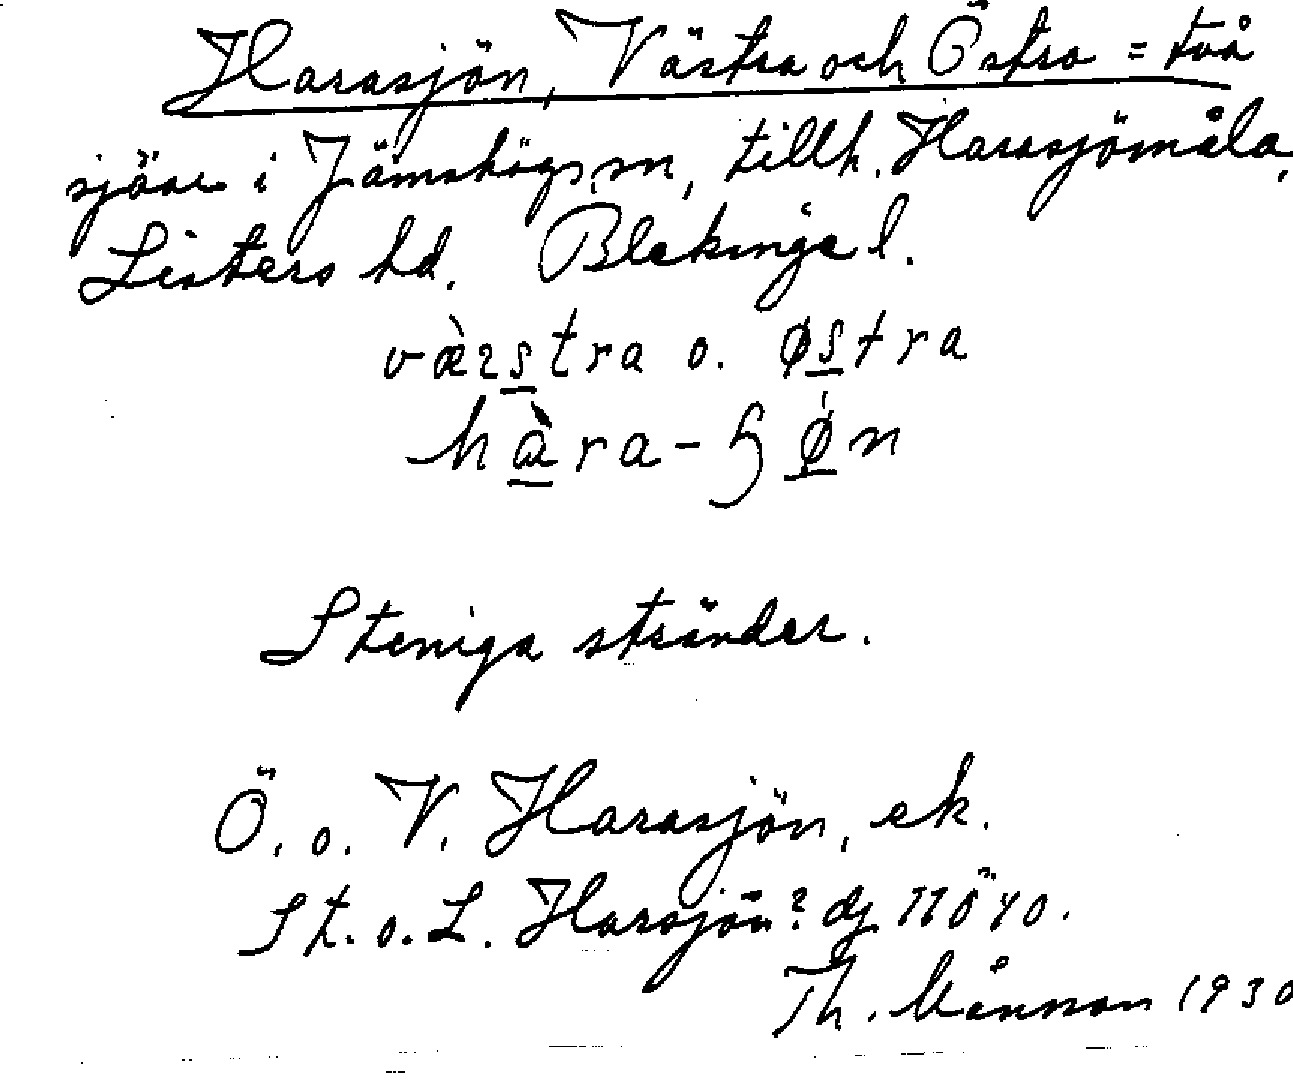 Harasjön, Västra och Östra = två
sjöar i Jämshögs sn, tillh. Harasjömåla,
Listers hd. Blekinge l.
væ̀rs̲tra o. øs̲tra
hà̲ra-ɧǿ̲n
Steniga stränder.
Ö. o. V. Harasjön, ek.
St. o. L. Harsjön? dg. 11Ö40.
Th. Månsson 1930